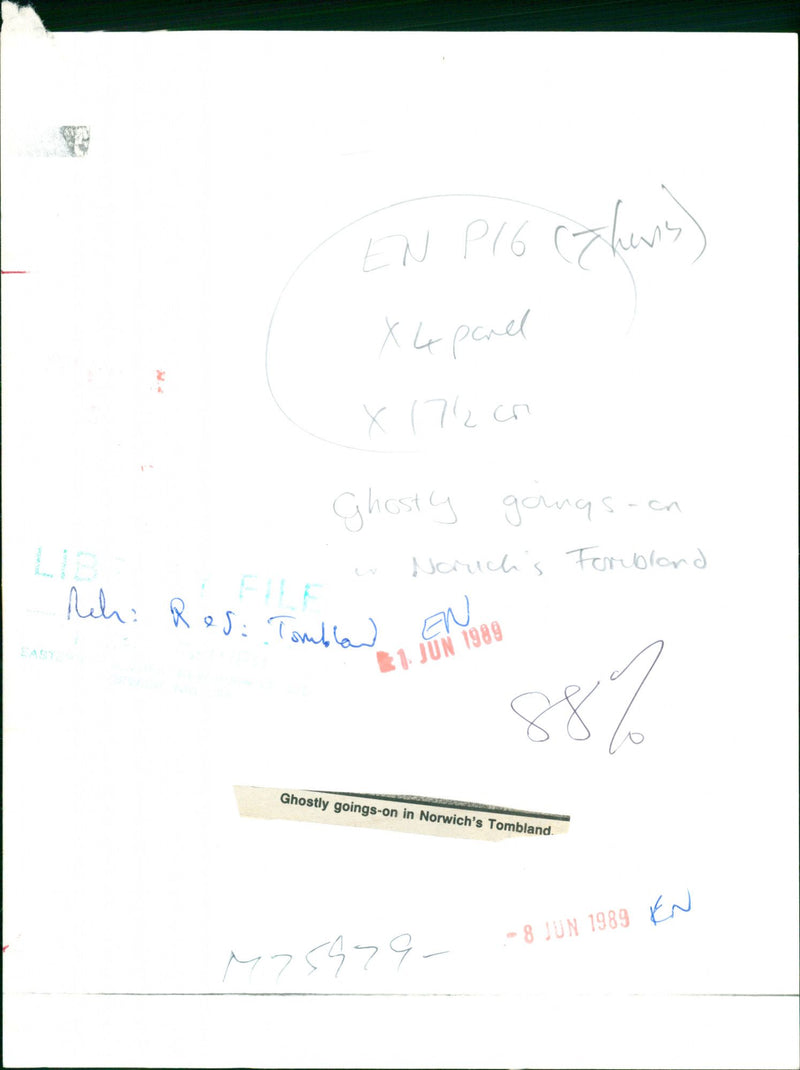 EN P16 (Thurs)
X 4 panel
X 17½ cm
Ghostly goings-on
in Norwich's Tombland
LIB Y FILE
Neh: Rds: Tombland EN
1 JUN 1989
88%
Ghostly goings-on in Norwich's Tombland.
-8 JUN 1989 EN
M75979-